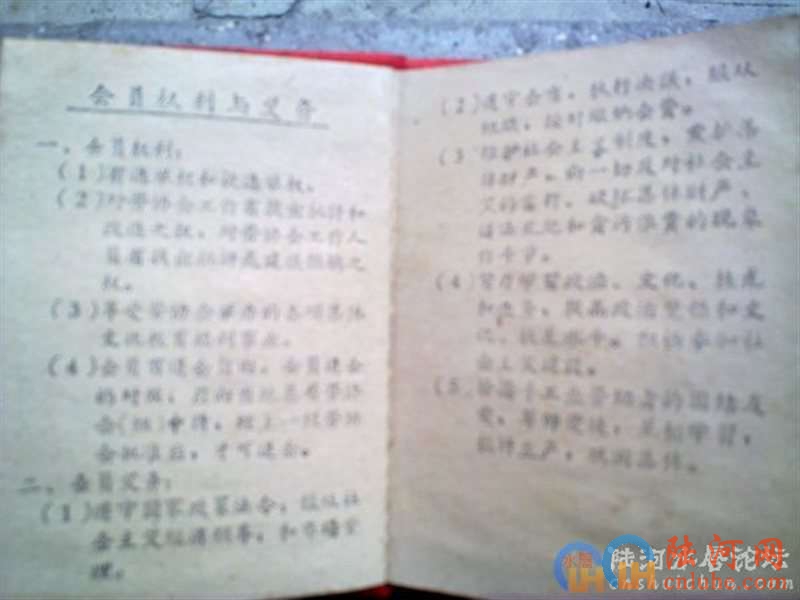 会员权利与义务
一、会员权利：
(1)有选举权和被选举权。
(2)对劳协会工作有提出批评和
改进之权，对劳协会工作人
员有提出批评或建议撤换之
权。
(3)享受劳协会举办的各项集体
文化教育福利事业。
(4)会员有退会自由，会员退会
的时候，
会(组)申请，经上一级劳协
会批准后，才可退会。
二、会员义务：
(1)遵守国家政策法令，服从社
会主义经济领导，和市场管
理。
(2)遵守会章，执行决议，服从
组织，按时缴纳会费。
(3 维护社会主义制度，爱护集
体财产，向一切反对社会主
义的言行，破坏集体财产、
违法乱纪和贪污浪费的现象
作斗争。
(4)学习政治、文化、技术
和业务，提高政治觉悟和文
化、技术水平，积极参加社
会主义建设。
(5 手工业劳动者的团结友
爱，学习，
生产，巩固集体。
水唇
陆河网
陆河水唇论坛
cnshuichun.com